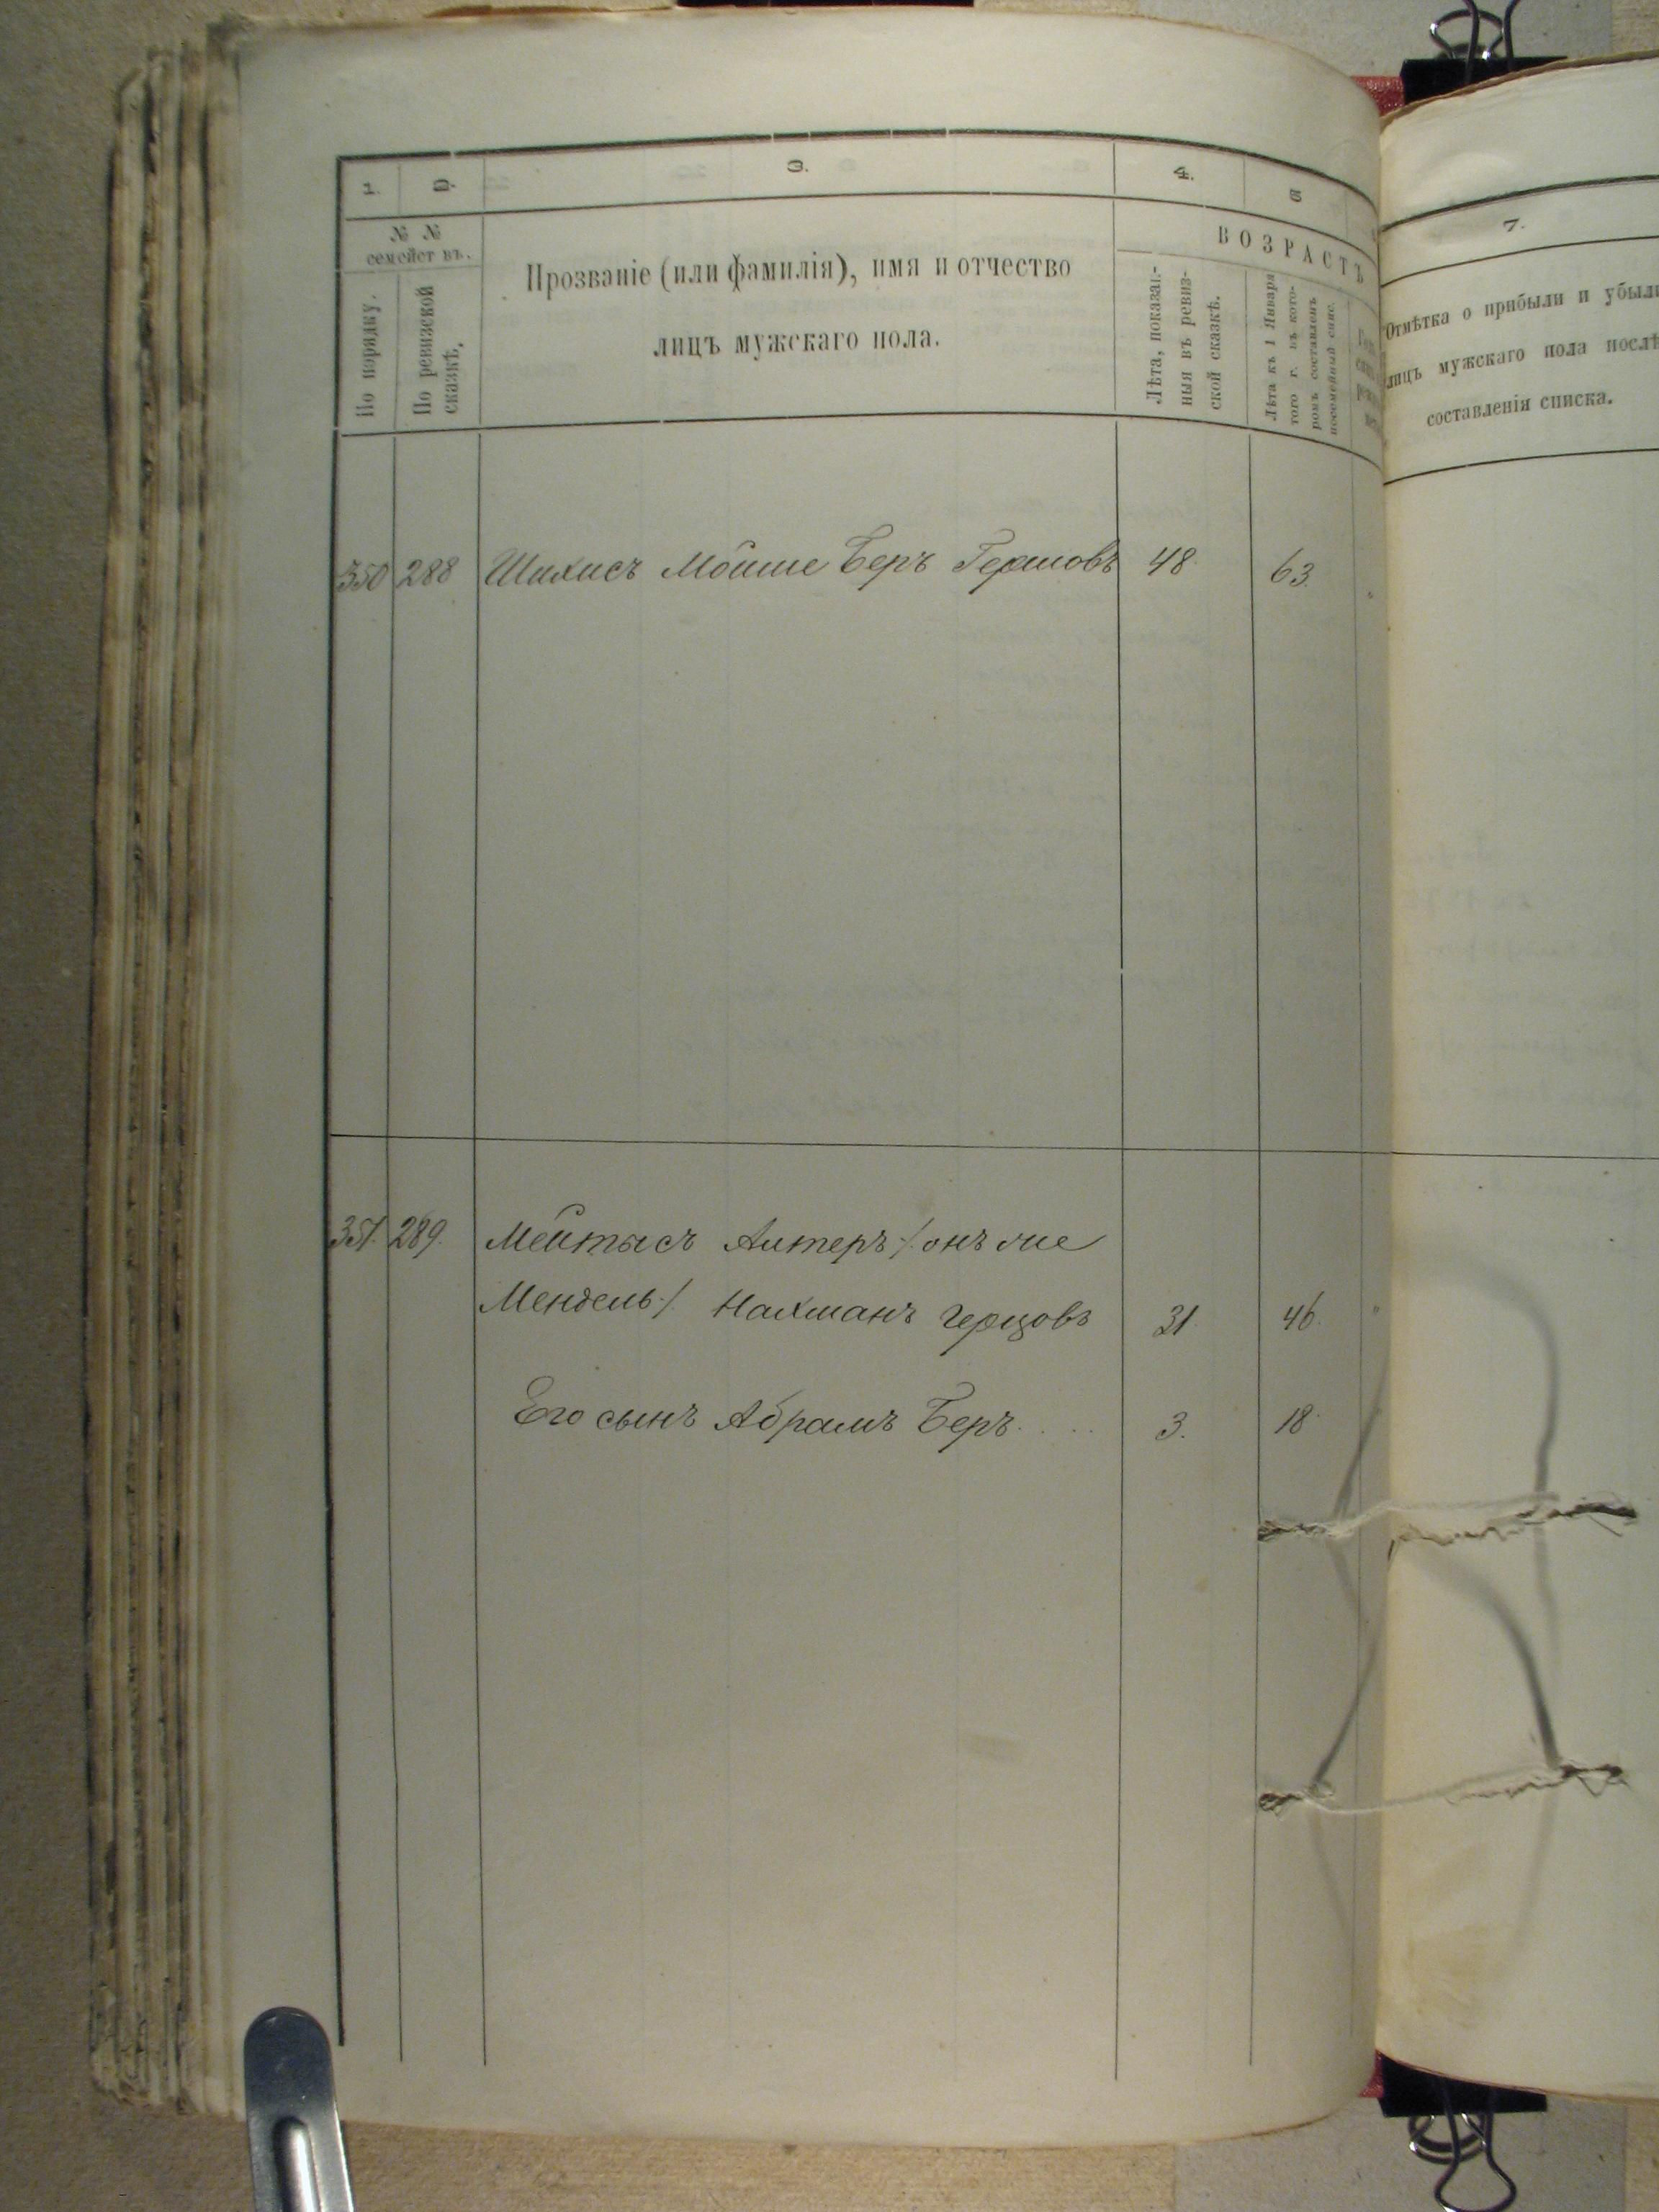 1. 2. 3. 4. 5
№ №
семействъ.
По порядку.
По ревизской
сказкѣ.
Прозваніе (или фамилія), имя и отчество
лицъ мужскаго пола.
ВОЗРАСТЪ
Лѣта, показан-
ныя въ ревиз-
ской сказкѣ.
Лѣта къ 1 Января
того г. въ кото-
ромъ составленъ
посемейный спис.
350 288 Шихисъ Мойше Беръ Гершовъ 48 63.
351. 289. Мейтысъ Антеръ /: онъ же
Мендель :/ Нахманъ Герцовъ 31. 46.
Его сынъ Абрамъ Беръ.... 3. 18
7.
Отмѣтка о прибыли и убыли
лицъ мужскаго пола послѣ
составленія списка.